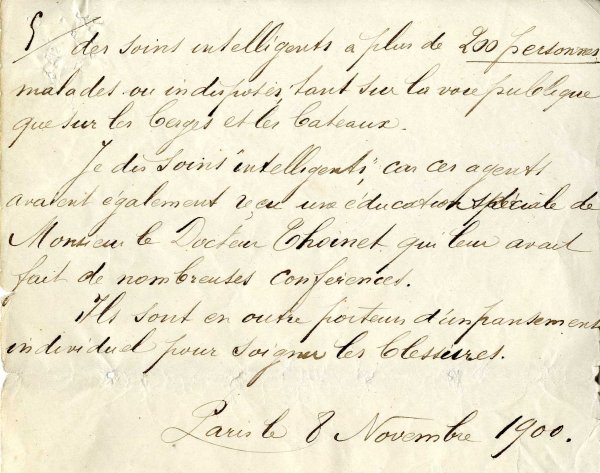 5/ des soins intelligents à plus de 200 personnes
malades ou indisposés, tant sur la voie publique
que sur les berges et les bateaux.
Je dis soins "intelligents" car ces agents
avaient également reçu une éducation spéciale de
Monsieur le Docteur Thoinet qui leur avait
fait de nombreuses conférences.
Ils sont en outre porteurs d'un pansement
individuel pour soigner les blessures.
Paris le 8 Novembre 1900.